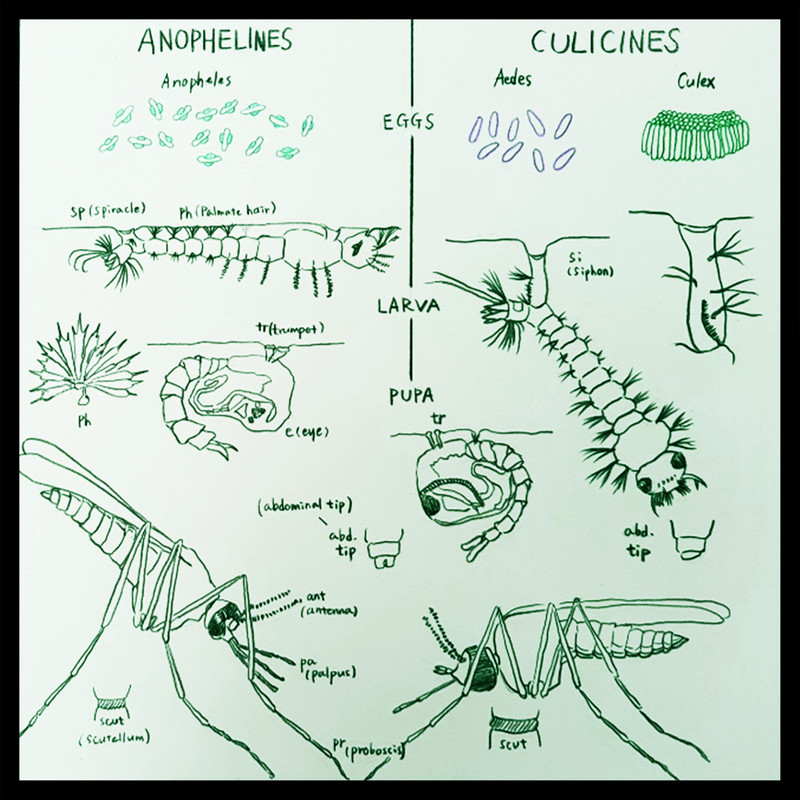 ANOPHELINES
CULICINES
Anopheles
Aedes
Culex
EGGS
sp (spiracle)
Ph (Palmate hair)
Si
(siphon)
LARVA
tr (trumpet)
Ph
e (eye)
PUPA
tr
(abdominal tip)
abd.
tip
abd.
tip
ant
(antenna)
pa
(palpus)
scut
(scutellum)
pr (proboscis)
scut